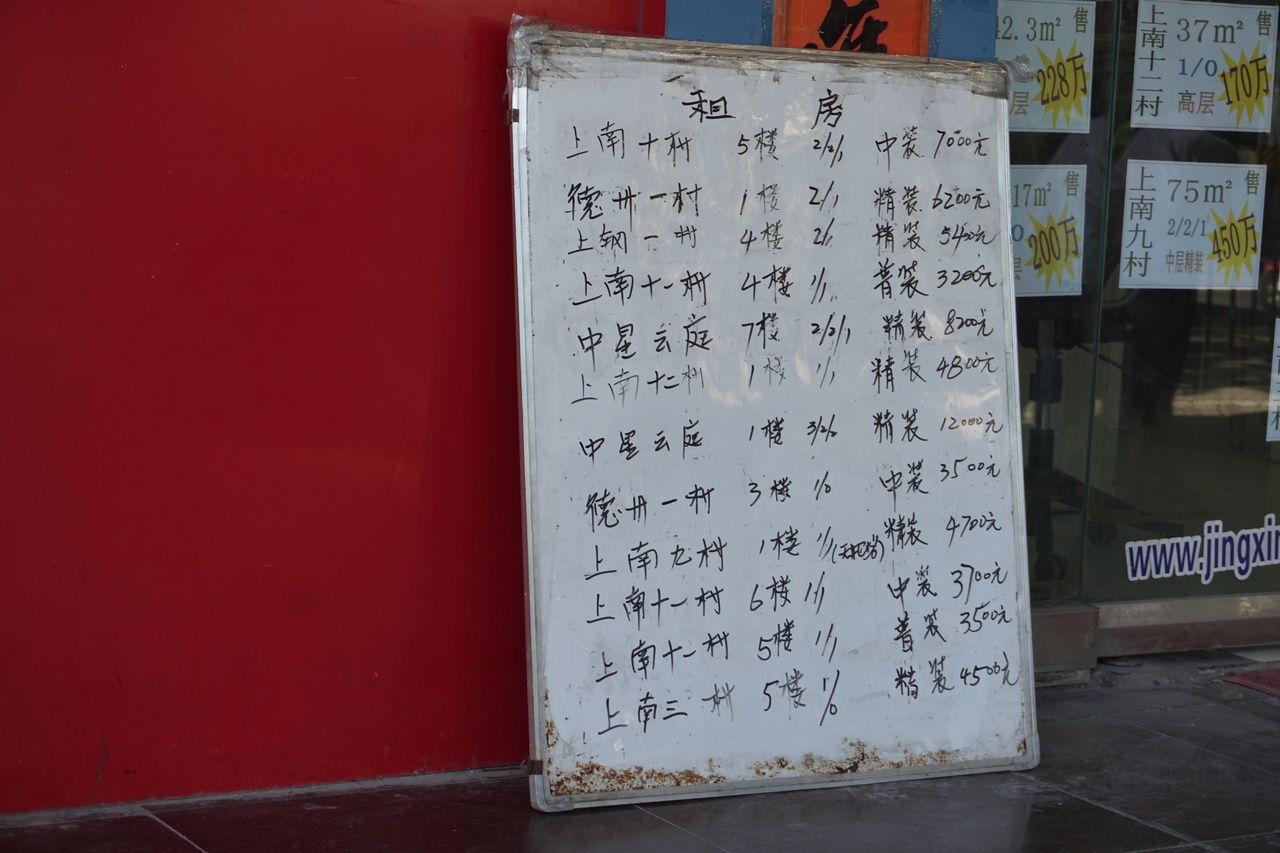 租 房
上南十村 5楼 2/2/1 中装 7000元
德州一村 1楼 2/1 精装 6200元
上钢一村 4楼 2/1 精装 5400元
上南十一村 4楼 1/1 普装 3200元
中星云庭 7楼 2/2/1 精装 8200元
上南十二村 1楼 1/1 精装 4800元
中星云庭 1楼 3/2/2 精装 12000元
德州一村 3楼 1/0 中装 3500元
上南九村 1楼 1/1 精装 4700元
上南十一村 6楼 1/1 中装 3700元
上南十一村 5楼 1/1 普装 3500元
上南三村 5楼 1/0 精装 4500元
2.3m² 售
层 228万
上南十二村 37m² 售
1/0
高层 170万
17m² 售
0
层 200万
上南九村 75m² 售
2/2/1
中层精装 450万
www.jingxin